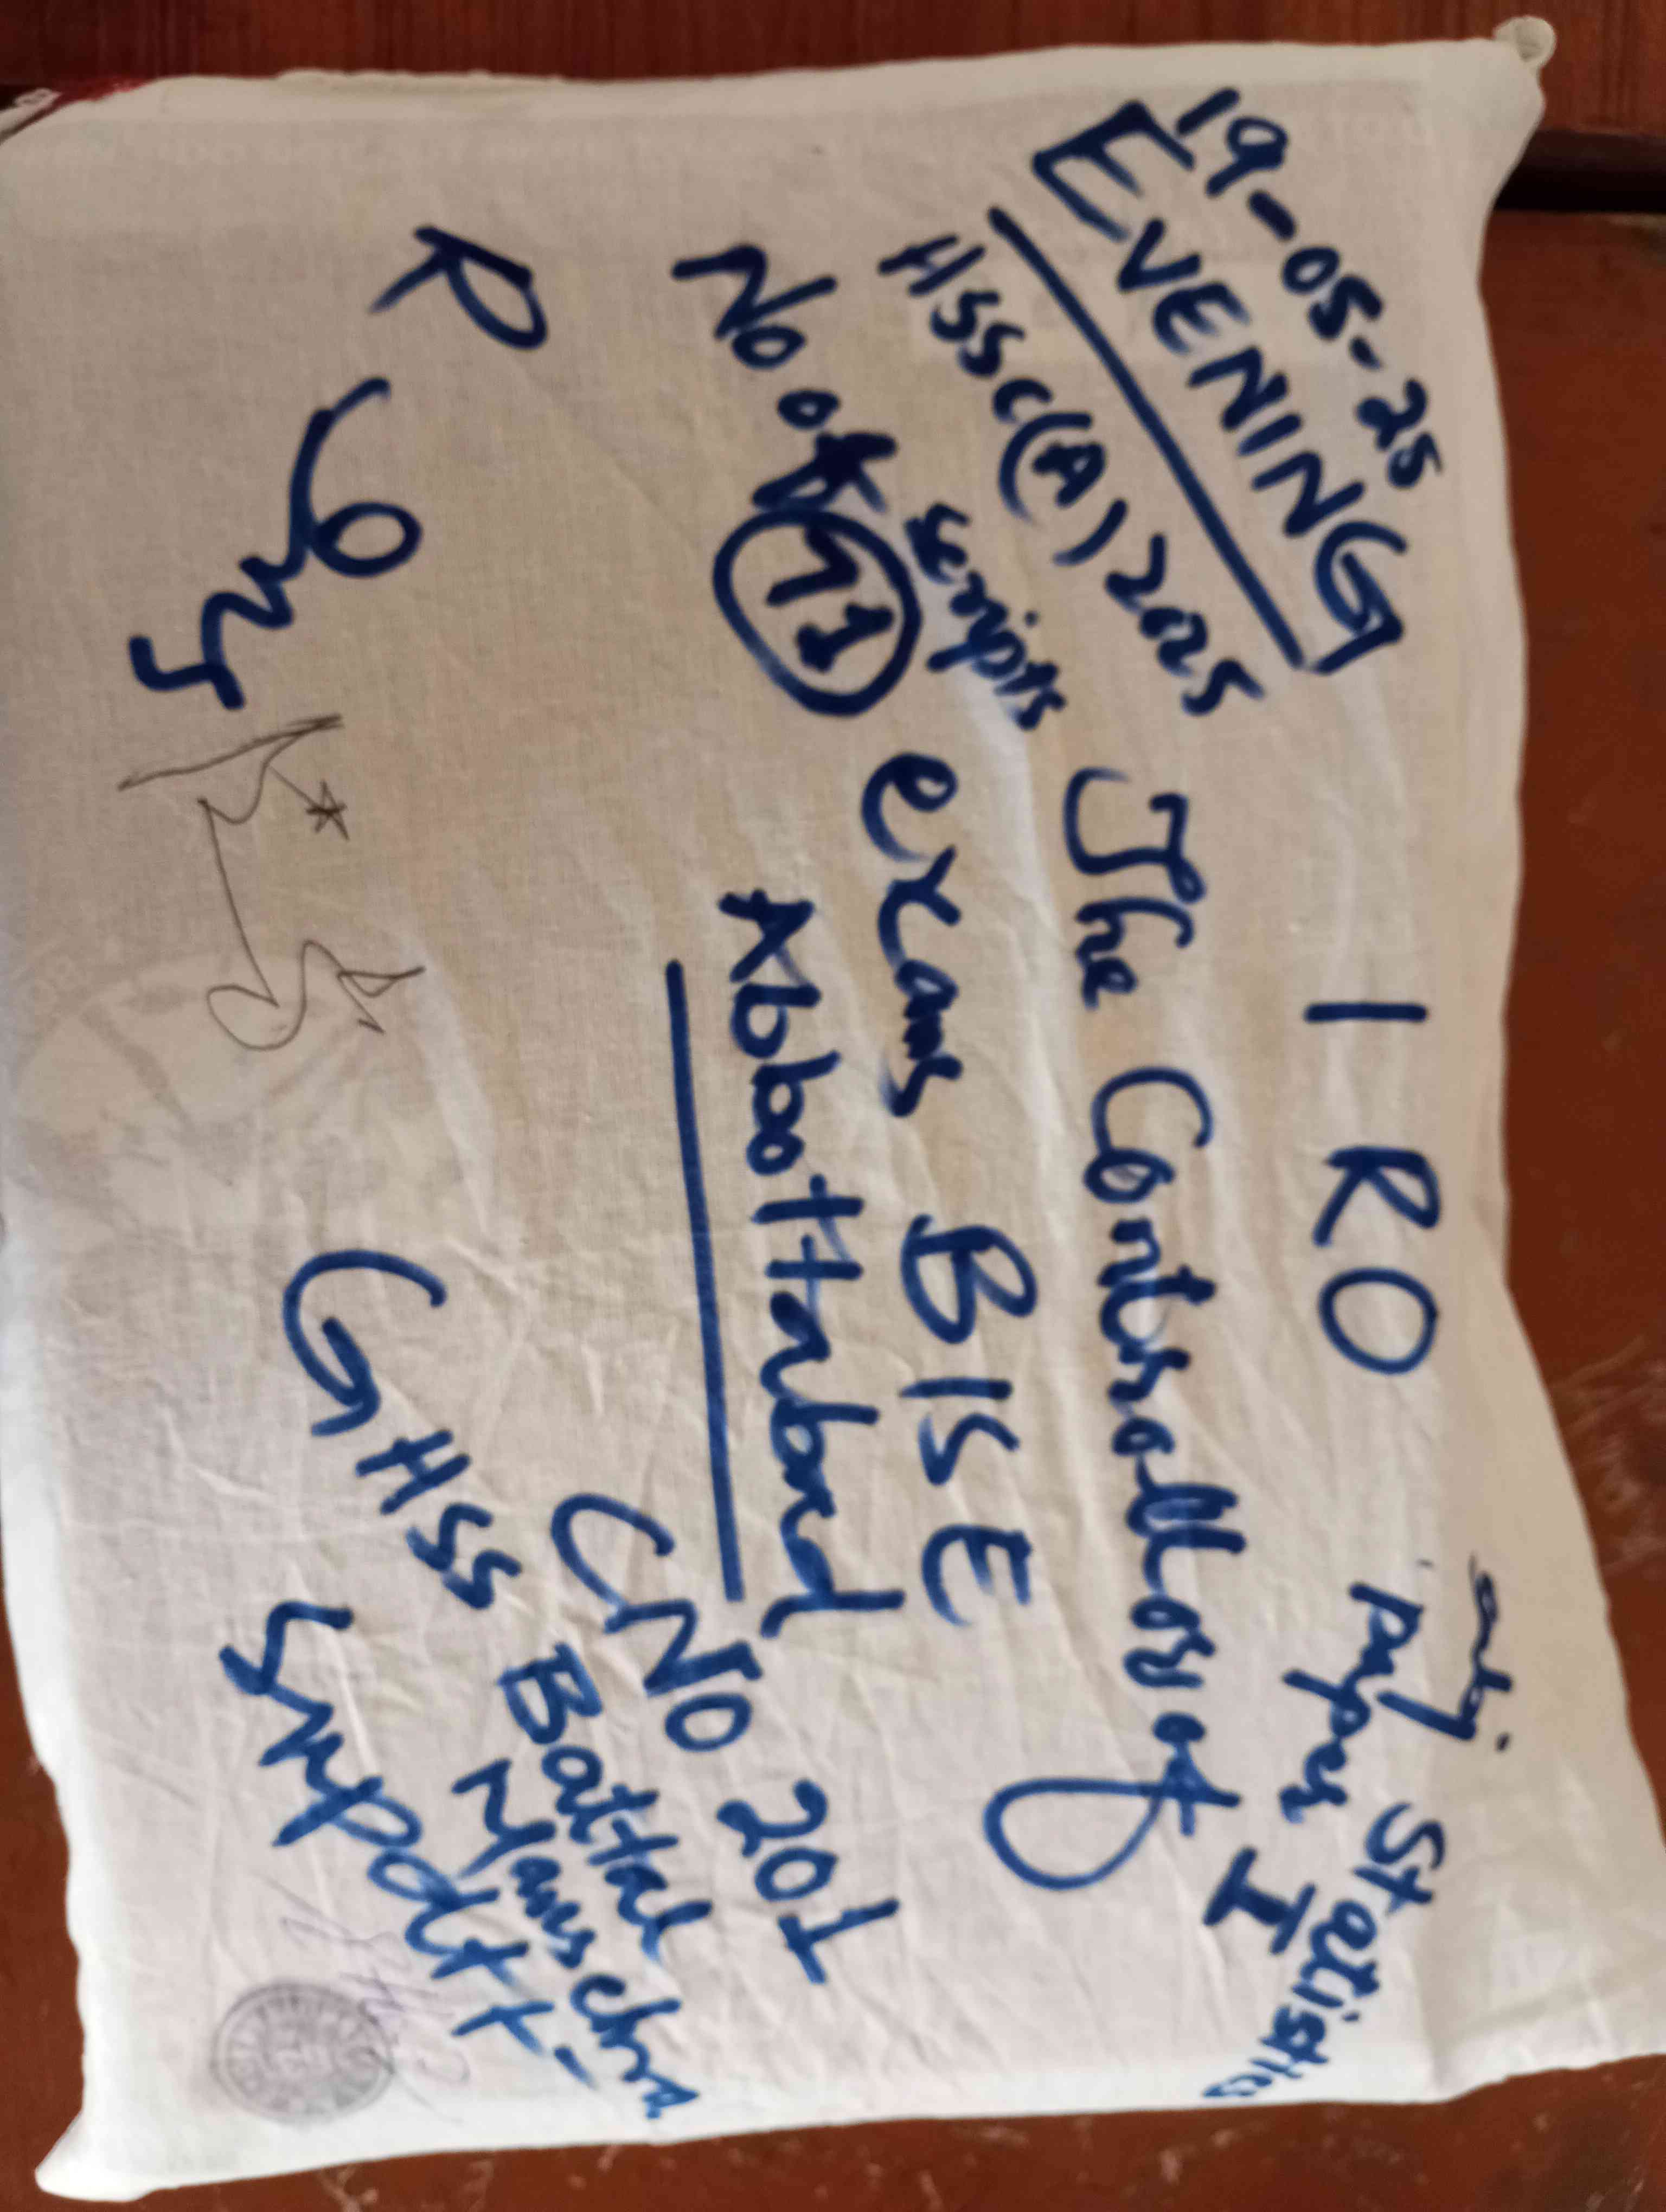 19-05-25
EVENING
HSSC(A) 2025
No of scripts
11
1 RO
The Controller of
exams BISE
Abbottabad
Subj. Statistics
paper I
CNo 201
GHSS Battal
Mansehra
Supdtt.
R